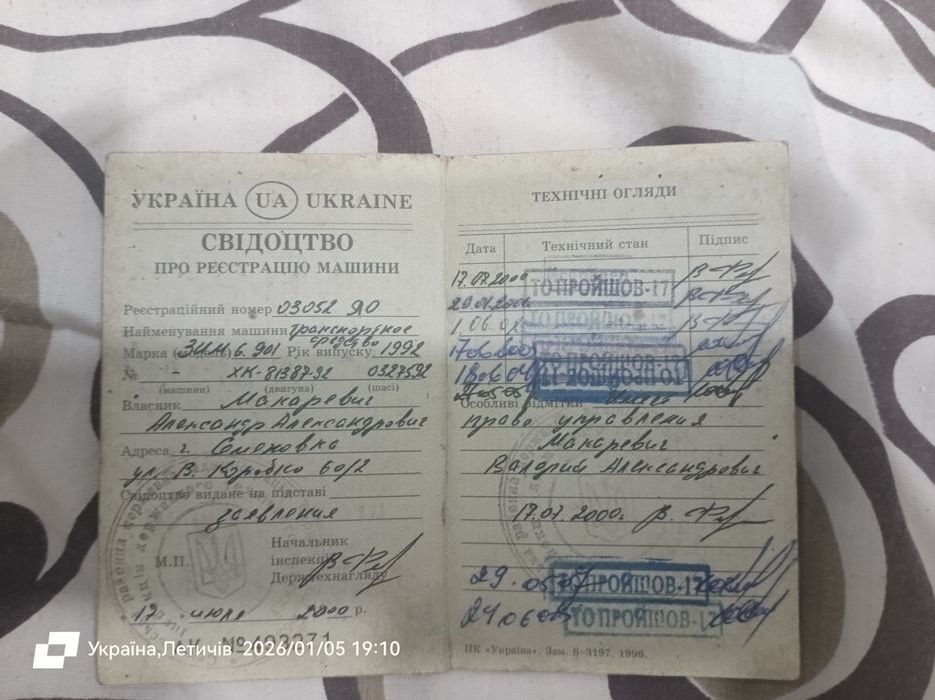 УКРАЇНА UA UKRAINE
СВІДОЦТВО
ПРО РЕЄСТРАЦІЮ МАШИНИ
Реєстраційний номер 03052 ЯО
Найменування машини транспортное
средство
Марка (модель) ЗИМ 6.901 Рік випуску 1992
№ - ХК-81387-92
(машини) (двигуна) (шасі)
Власник Макаревич
Александр Александрович
Адреса г. Семеновка
ул. В. Коробко 60/2
Свідоцтво видане на підставі
заявления
Начальник
М.П. інспекції
Держтехнагляду
17 июля 2000 р.
ТЕХНІЧНІ ОГЛЯДИ
Дата Технічний стан Підпис
17.07.2000 ТО ПРОЙШОВ-17
Особливі відмітки
право управления
Макаревич
Валерий Александрович
17.07.2000г.
29.05 ТО ПРОЙШОВ-17
ТО ПРОЙШОВ-17
ПК «Україна». Зам. 6-3197, 1996.
Україна,Летичів 2026/01/05 19:10